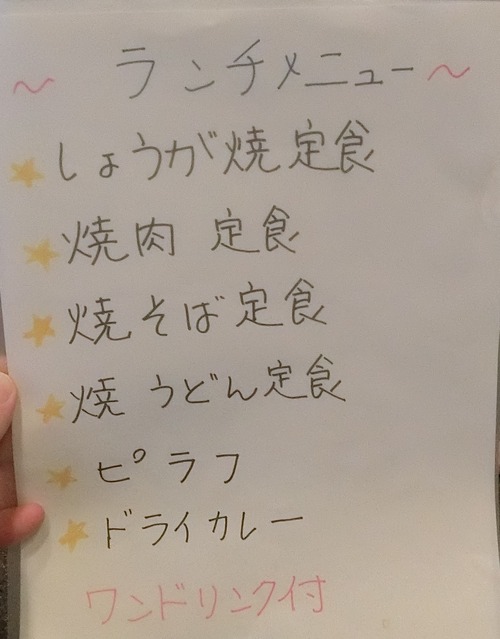 ~ ランチメニュー ~
しょうが焼定食
焼肉 定食
焼そば定食
焼うどん定食
ピラフ
ドライカレー
ワンドリンク付